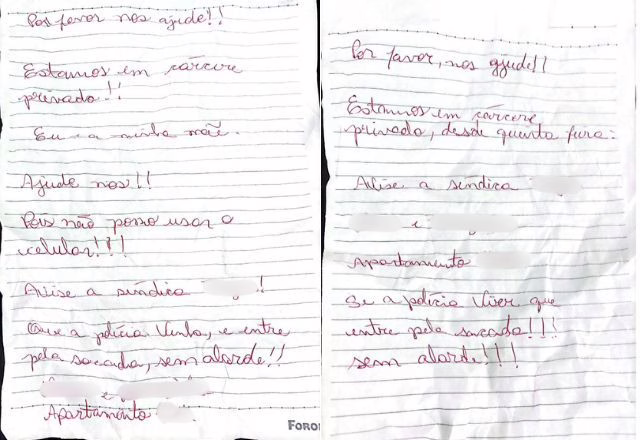 Por favor nos ajude!!
Estamos em cárcere
privado!!
Eu e a minha mãe.
Ajude nos!!
Pois não posso usar o
celular!!!
Avise a síndica !
Que a polícia Venha, e entre
pela sacada, sem alarde!!
e
Apartamento
Foron
Por favor, nos ajude!!
Estamos em cárcere
privado, desde quarta feira:
Avise a síndica
e
Apartamento
Se a polícia Vier que
entre pela sacada!!!
sem alarde!!!